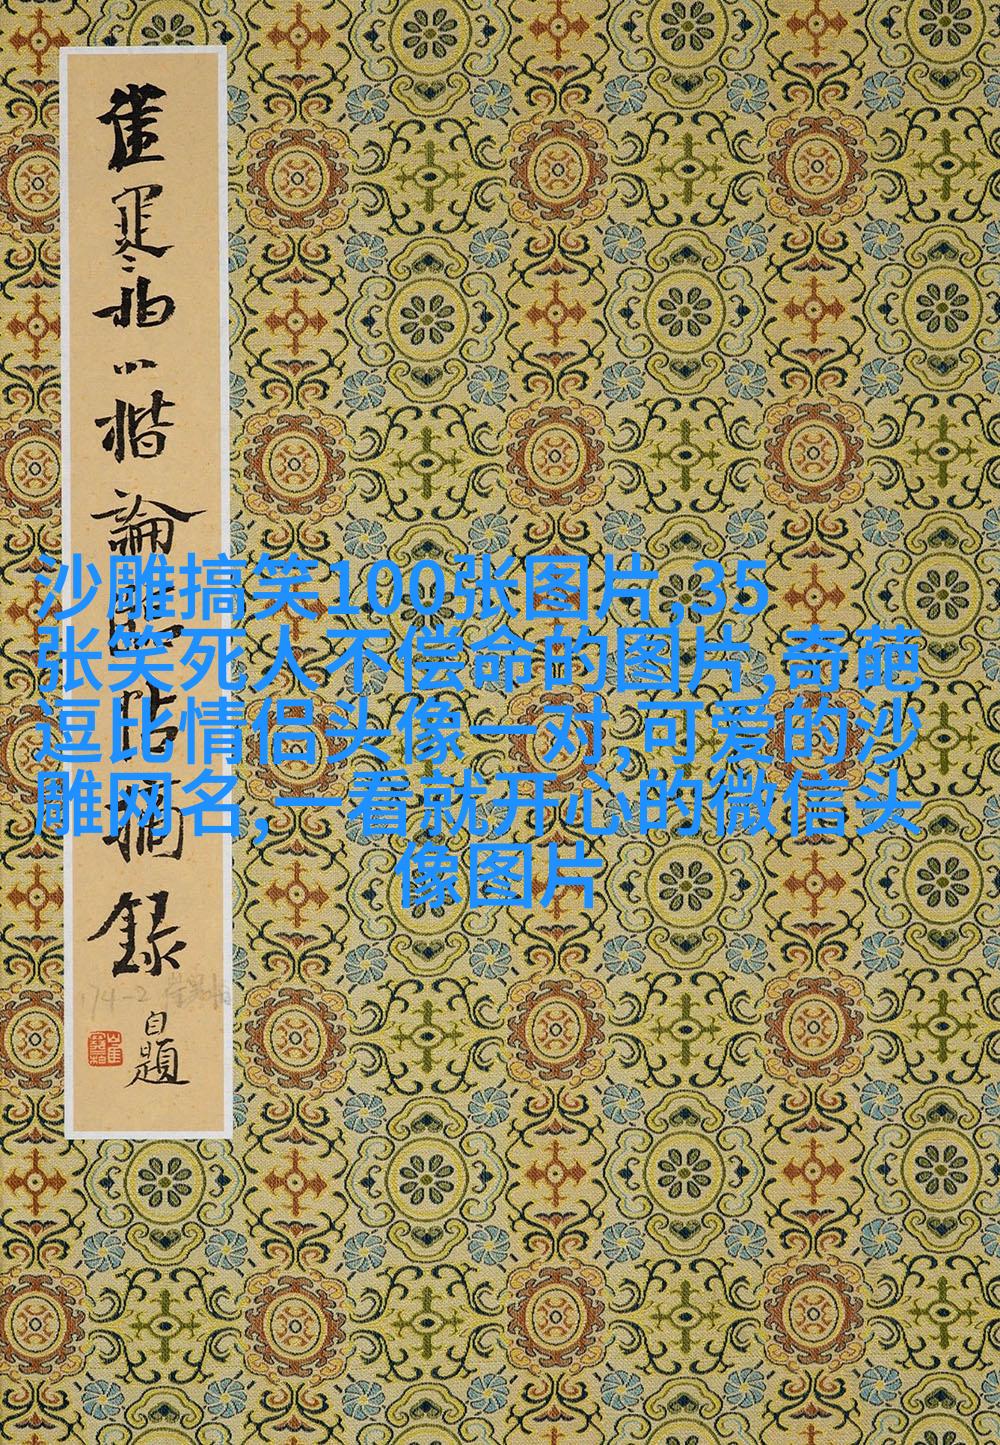 崔寒柏小楷論臨帖摘錄
自題
沙雕搞笑100张图片,35
张笑死人不偿命的图片,奇葩
逗比情侣头像一对,可爱的沙
雕网名,一看就开心的微信头
像图片
174-2